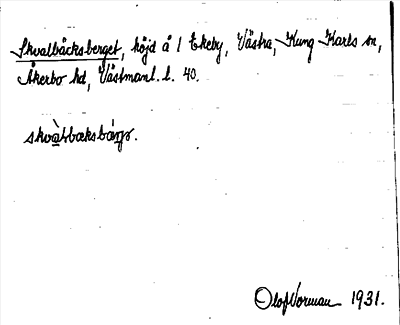 Skvalbäcksberget, höjd å 1 Ekeby, Västra, Kung Karls sn,
Åkerbo hd, Västmanl. l. 40.
Olof Vorman 1931.